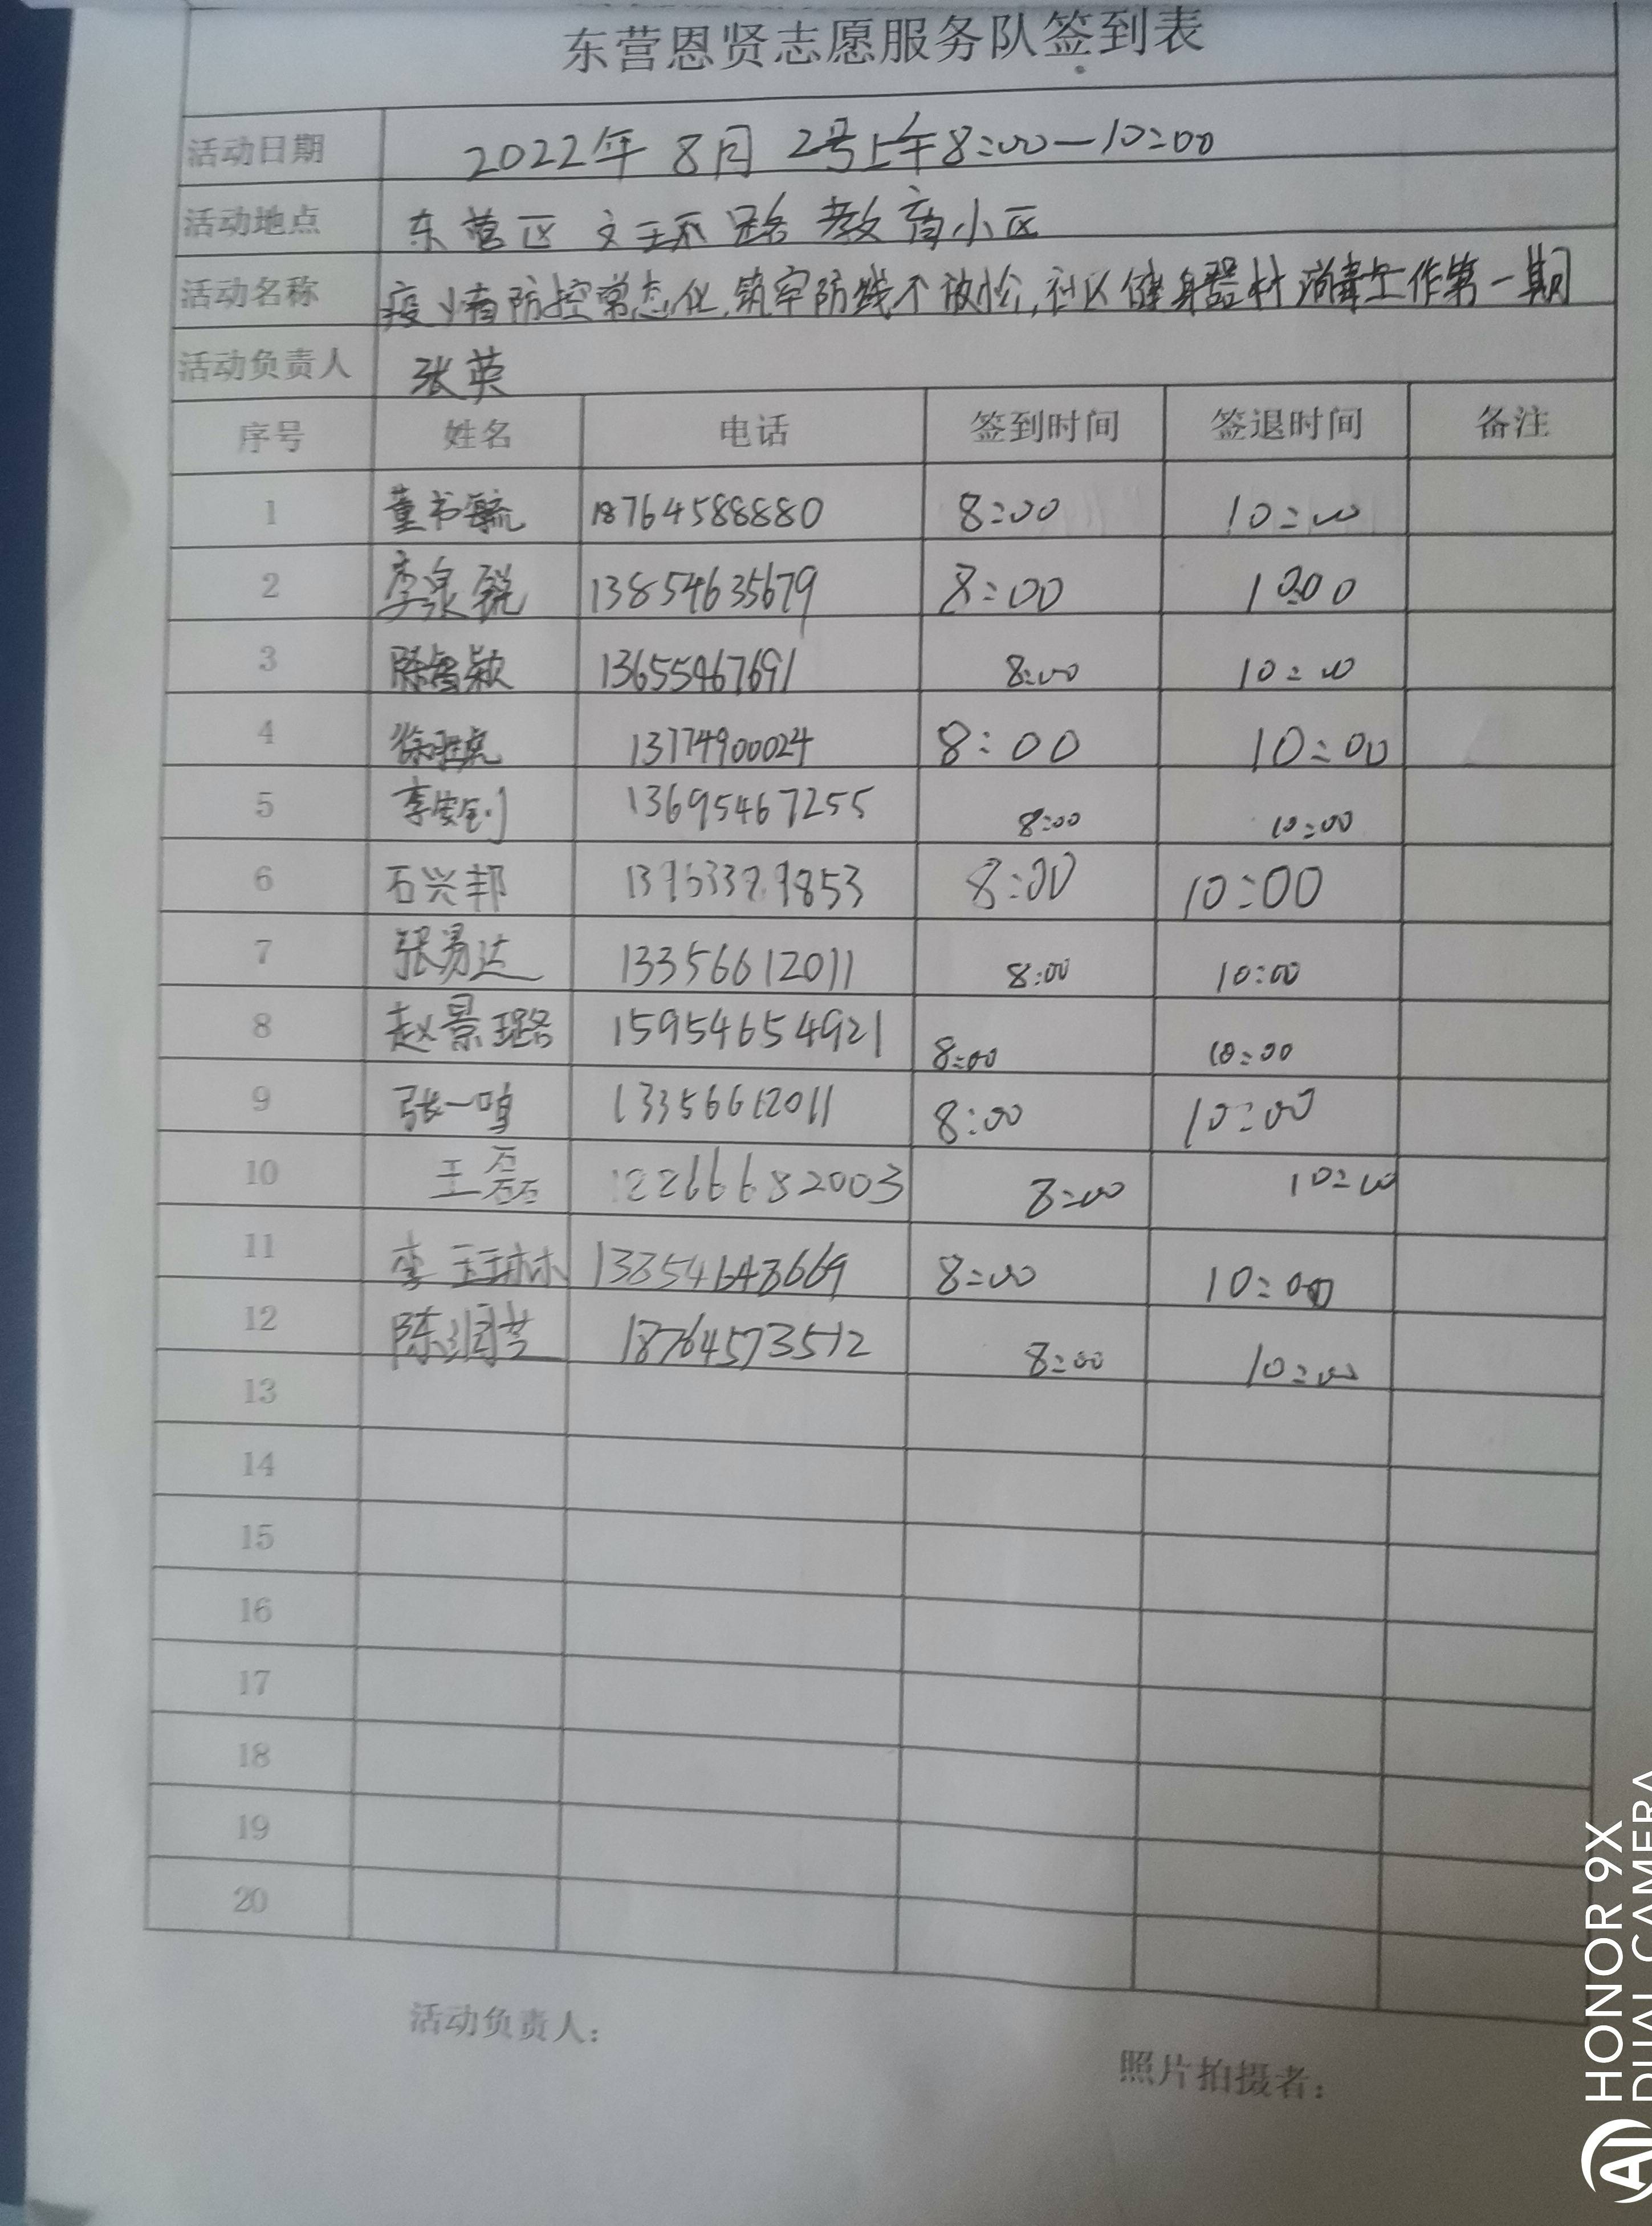 东营恩贤志愿服务队签到表
活动日期 2022年 8月 2号上午8:00—10:00
活动地点 东营区 文汇 路 教育小区
活动名称 疫情防控常态化,筑牢防线不放松,社区健身器材消毒工作第一期
活动负责人 张英
序号 姓名 电话 签到时间 签退时间 备注
1 董书毓 18764588880 8:00 10:00
2 李泉锐 13854635679 8:00 10:00
3 13655467691 8:00 10:00
4 13774900024 8:00 10:00
5 13695467255 8:00 10:00
6 石兴邦 8:00 10:00
7 张易达 13356612011 8:00 10:00
8 赵景璐 15954654921 8:00 10:00
9 张一鸣 13356612011 8:00 10:00
10 王磊 8:00 10:00
11 李玉琳 8:00 10:00
12 陈润芝 18764573512 8:00 10:00
13
14
15
16
17
18
19
20
活动负责人:
照片拍摄者:
HONOR 9X
DUAL CAMERA
AI